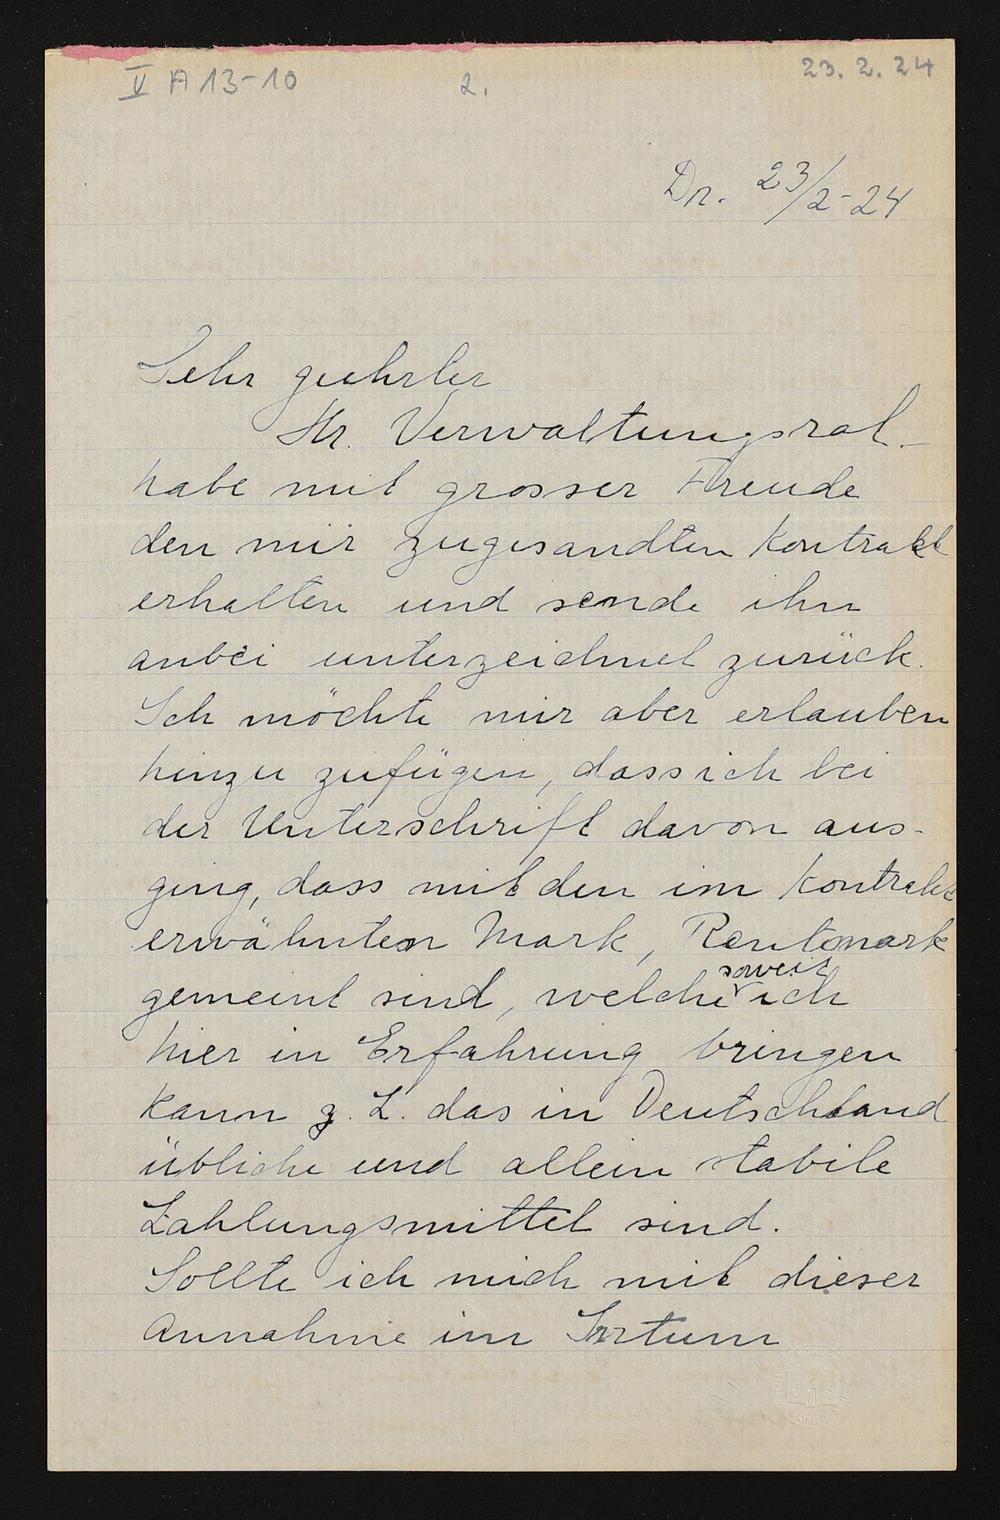 V A 13-10 2. 23.2.24
Dr. 23/2-24
Sehr geehrter
Hr. Verwaltungsrat.
habe mit grosser Freude
den mir zugesandten Kontrakt
erhalten und sende ihn
anbei unterzeichnet zurück.
Ich möchte mir aber erlauben
hinzu zufügen, dass ich bei
der Unterschrift davon aus-
ging, dass mit den im Kontrakt
erwähnten Mark, Rentmark
soweit
gemeint sind, welche ich
hier in Erfahrung bringen
kann z. Z. das in Deutschland
übliche und allein stabile
Zahlungsmittel sind.
Sollte ich mich mit dieser
Annahme im Irrtum